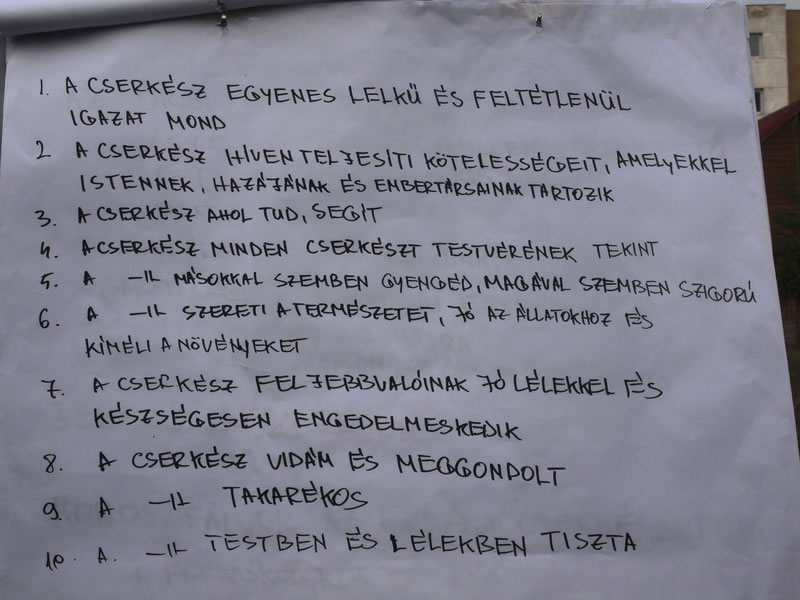 1. A CSERKÉSZ EGYENES LELKŰ ÉS FELTÉTLENÜL
IGAZAT MOND
2 A CSERKÉSZ HÍVEN TELJESÍTI KÖTELESSÉGEIT, AMELYEKKEL
ISTENNEK, HAZÁJÁNAK ÉS EMBERTÁRSAINAK TARTOZIK
3. A CSERKÉSZ AHOL TUD, SEGÍT
4. A CSERKÉSZ MINDEN CSERKÉSZT TESTVÉRÉNEK TEKINT
5. A -11- MÁSOKKAL SZEMBEN GYENGÉD, MAGÁVAL SZEMBEN SZIGORÚ
6. A -11- SZERETI A TERMÉSZETET, JÓ AZ ÁLLATOKHOZ ÉS
KÍMÉLI A NÖVÉNYEKET
7. A CSERKÉSZ FELJEBBVALÓINAK JÓ LÉLEKKEL ÉS
KÉSZSÉGESEN ENGEDELMESKEDIK
8. A CSERKÉSZ VIDÁM ÉS MEGGONDOLT
9. A -11- TAKARÉKOS
10. A. -11- TESTBEN ÉS LÉLEKBEN TISZTA